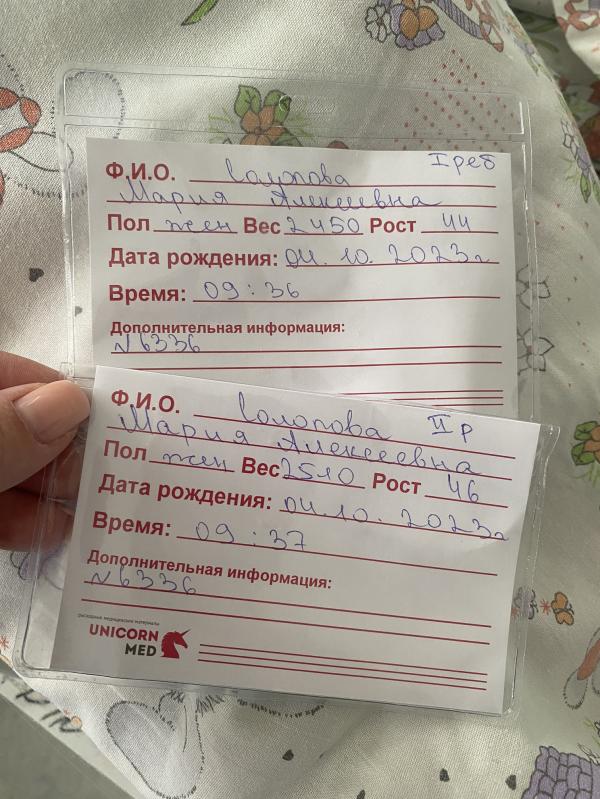 I реб
Ф.И.О.
Мария Алексеевна
Пол жен Вес 2450 Рост 44
Дата рождения: 04.10.2023г
Время: 09:36
Дополнительная информация:
N6336
Ф.И.О. II р
Мария Алексеевна
Пол жен Вес 2510 Рост 46
Дата рождения: 04.10.2023г
Время: 09:37
Дополнительная информация:
N6336
расходные медицинские материалы
UNICORN
MED